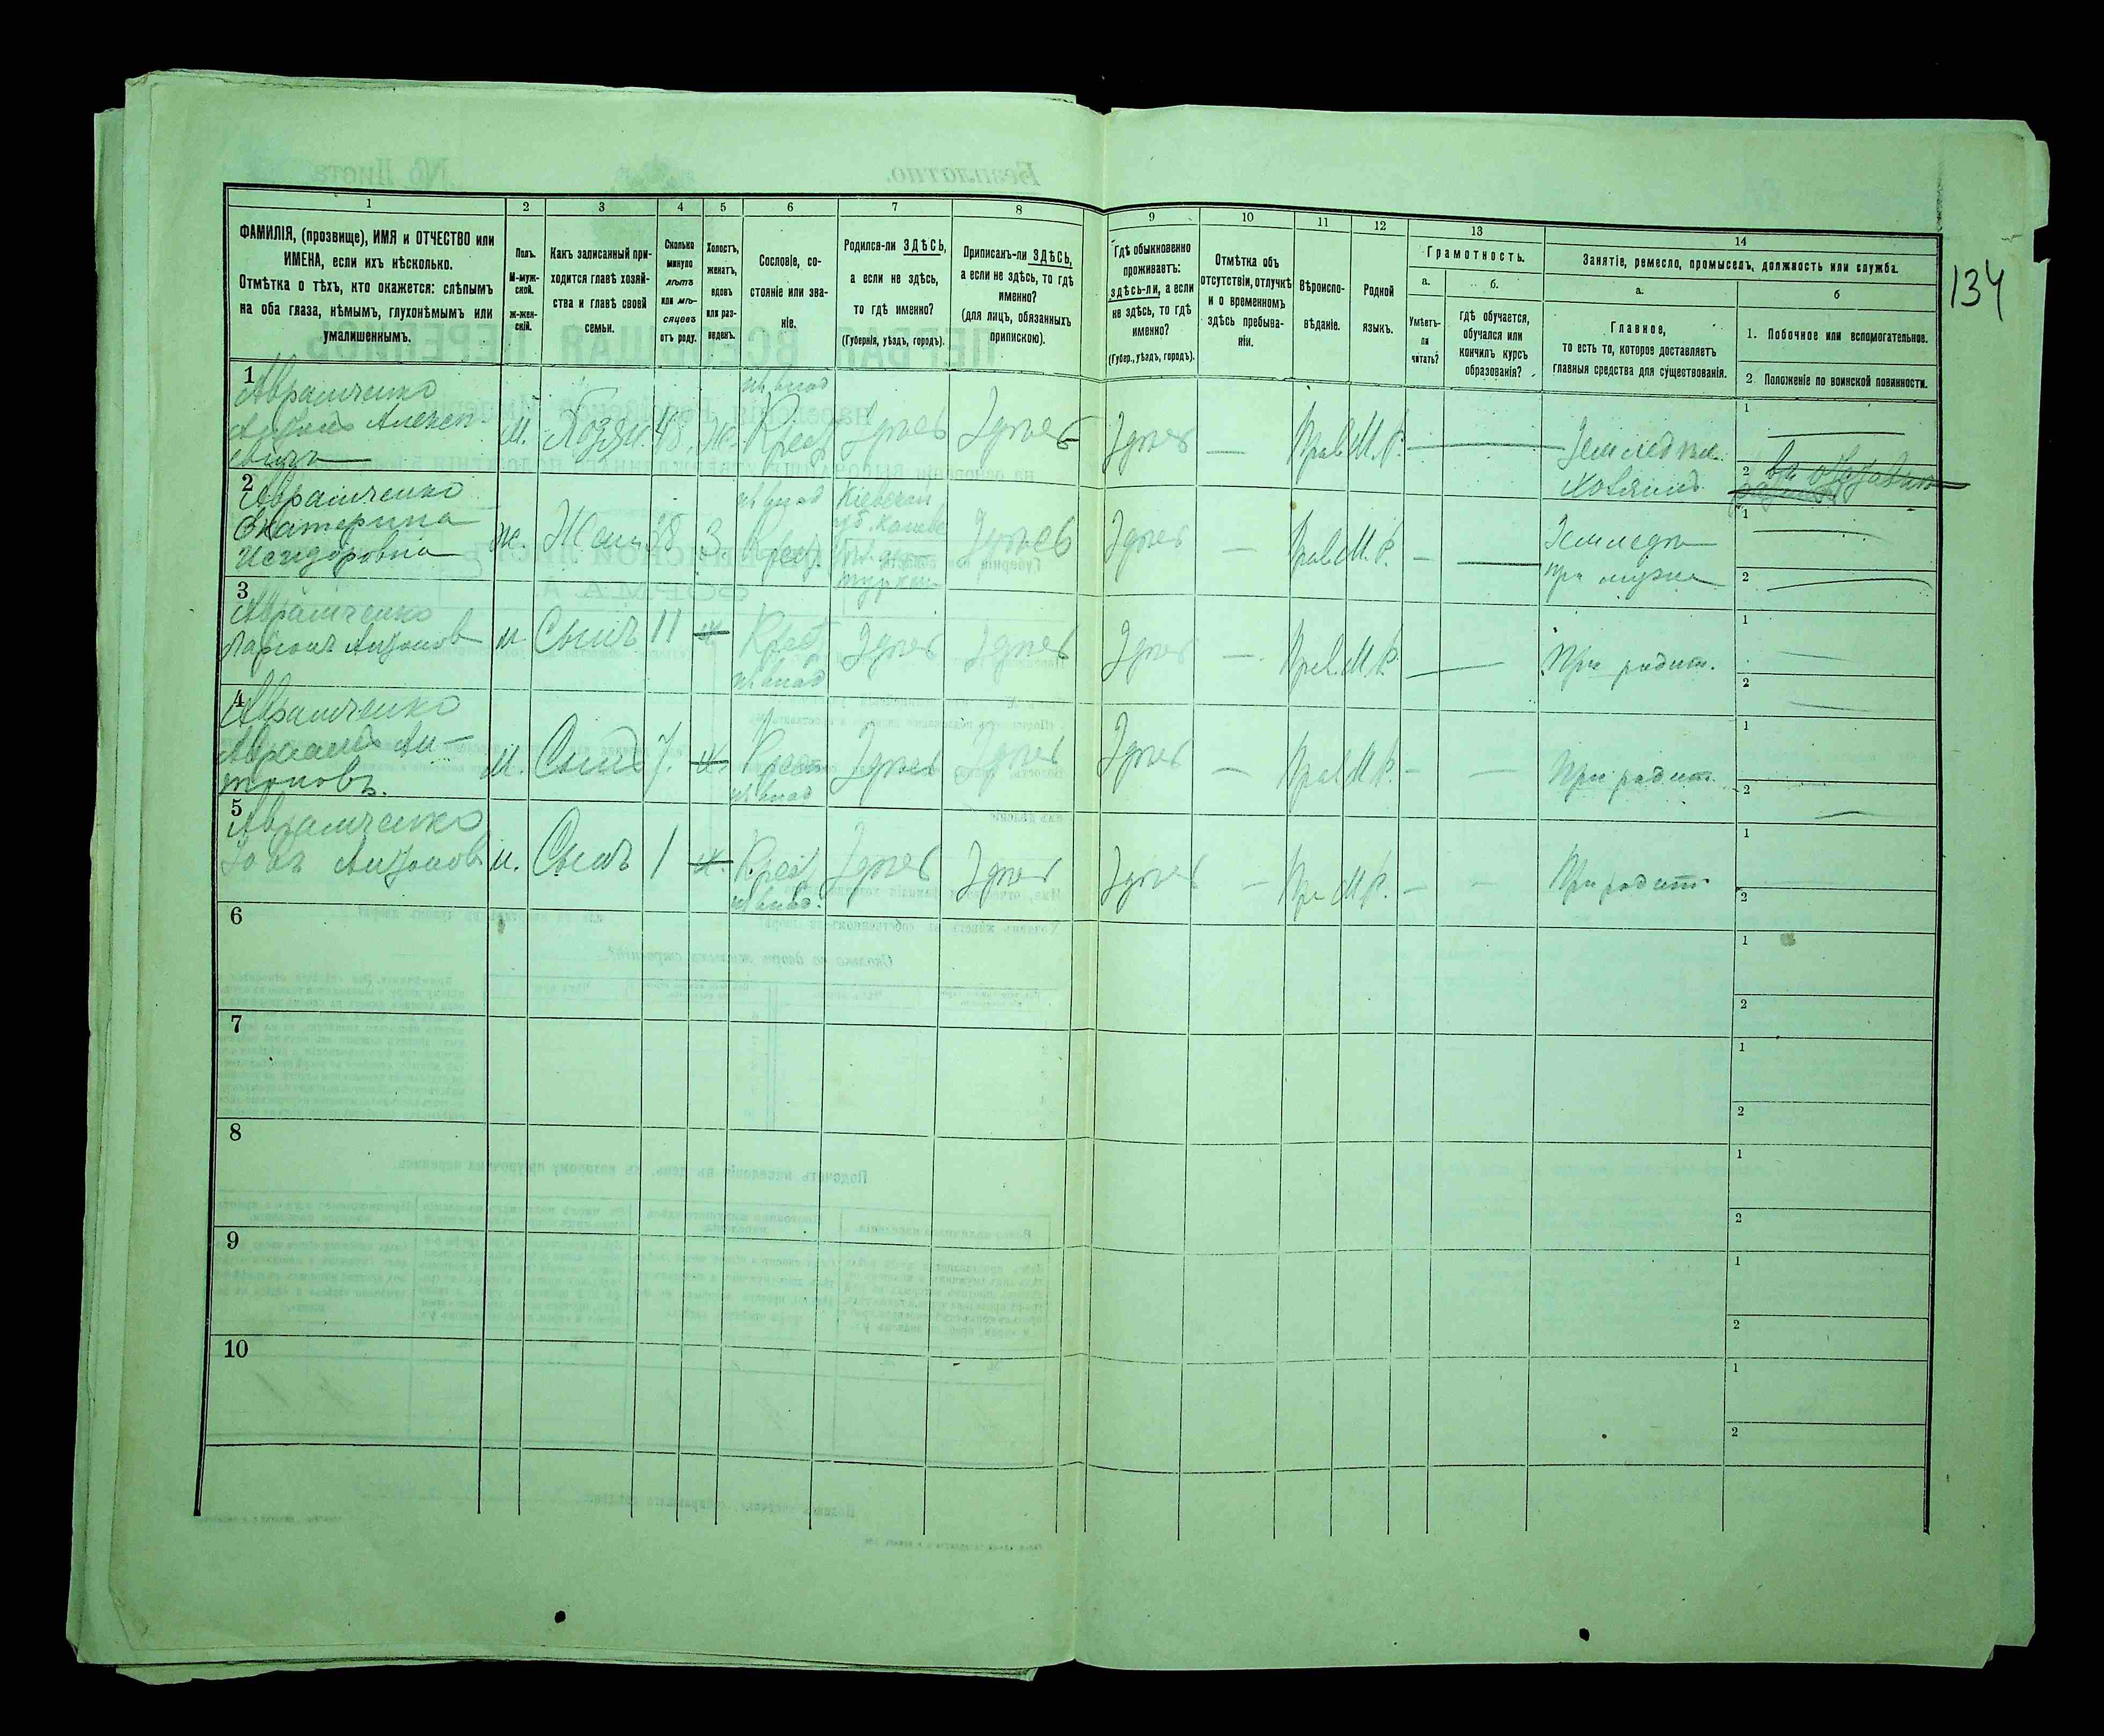 1 2 3 4 5 6 7 8 9 10 11 12 13 14
ФАМИЛІЯ, (прозвище), ИМЯ и ОТЧЕСТВО или
ИМЕНА, если ихъ нѣсколько.
Отмѣтка о тѣхъ, кто окажется: слѣпымъ
на оба глаза, нѣмымъ, глухонѣмымъ или
умалишеннымъ.
Полъ.
М-муж-
ской.
ж-жен-
скій.
Какъ записанный при-
ходится главѣ хозяй-
ства и главѣ своей
семьи.
Сколько
минуло
лѣтъ
или мѣ-
сяцевъ
отъ роду.
Холостъ,
женатъ,
вдовъ
или раз-
веденъ.
Сословіе, со-
стояніе или зва-
ніе.
Родился-ли ЗДѢСЬ,
а если не здѣсь,
то гдѣ именно?
(Губернія, уѣздъ, городъ).
Приписанъ-ли ЗДѢСЬ,
а если не здѣсь, то гдѣ
именно?
(для лицъ, обязанныхъ
припискою).
Гдѣ обыкновенно
проживаетъ:
здѣсь-ли, а если
не здѣсь, то гдѣ
именно?
(Губер., уѣздъ, городъ).
Отмѣтка объ
отсутствіи, отлучкѣ
и о временномъ
здѣсь пребыва-
ніи.
Вѣроиспо-
вѣданіе.
Родной
языкъ.
Грамотность.
а.
Умѣетъ-
ли
читать?
б.
гдѣ обучается,
обучался или
кончилъ курсъ
образованія?
Занятіе, ремесло, промыселъ, должность или служба.
а.
Главное,
то есть то, которое доставляетъ
главныя средства для существованія.
б
1. Побочное или вспомогательное.
2. Положеніе по воинской повинности.
134
1
Аврамченко
Антонъ Алексе-
евичъ
м. Хозяи. 48. ж. Крест Здѣсь Здѣсь Здѣсь — Прав. М.Р. — Земледѣл.
Хозяинъ
1
2
2
Аврамченко
Екатерина
Исидоровна
ж. Жена 38 З. Крест. Кіевской
Здѣсь Здѣсь — Прав. М.Р. — — Земледѣл
при мужѣ
1
2
3
Аврамченко
Ларіонъ Антонов
м Сынъ 11 Крест Здѣсь Здѣсь Здѣсь — Прав. М.Р. — При родит.
1
2
4
Аврамченко
Ан-
тоновъ.
м. Сынъ 7. Крест Здѣсь Здѣсь Здѣсь — Прав М.Р. — — При родит.
1
2
5
Аврамченко
Антонов
м. Сынъ 1 Крест Здѣсь Здѣсь Здѣсь — Пра М.Р. — — При родит
1
2
6
1
2
7
1
2
8
1
2
9
1
2
10
1
2